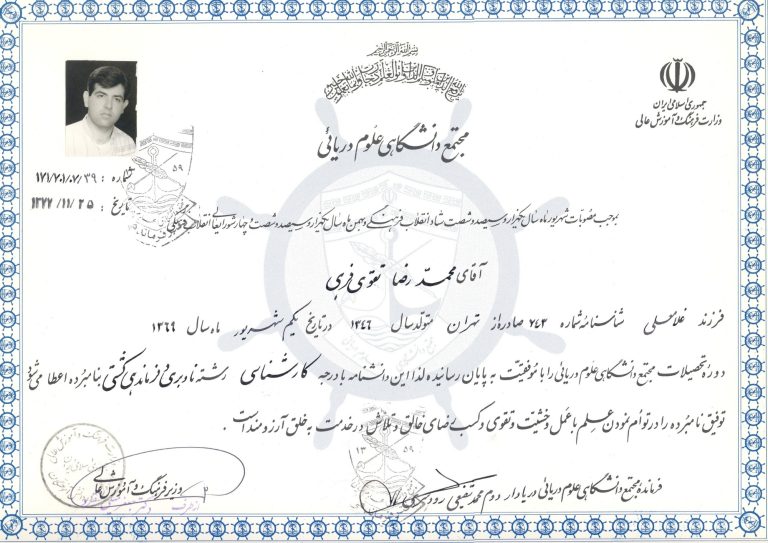 بسم الله الرحمن الرحیم
جمهوری اسلامی ایران
وزارت فرهنگ و آموزش عالی
مجتمع دانشگاهی علوم دریائی
شماره : ۱۷۱/۷۰۱/۰۷/۳۹
تاریخ : ۱۳۷۲/۱۱/۲۵
بموجب مصوبات شهریور ماه سال یکهزار و سیصد و شصت ستاد انقلاب فرهنگی و بهمن ماه سال یکهزار و سیصد و شصت و چهار شورایعالی انقلاب فرهنگی
آقای محمد رضا تقوی فردی
فرزند غلامعلی شناسنامه شماره ۶۷۳ صادره از تهران متولد سال ۱۳۴۶ در تاریخ یکم شهریور ماه سال ۱۳۶۹
دوره تحصیلات مجتمع دانشگاهی علوم دریائی را با موفقیت به پایان رسانیده لذا این دانشنامه با درجه کارشناسی رشته ناوبری و فرماندهی کشتی بنامبرده اعطا می شود
توفیق نامبرده را در توأم نمودن علم با عمل و خشیت و تقوی و کسب رضای خالق و تلاش در خدمت به خلق آرزومند است .
فرمانده مجتمع دانشگاهی علوم دریائی دریادار دوم محمد شفیعی رودسری
وزیر فرهنگ و آموزش عالی
از طرف
۱۳ ۵۹
۵۹